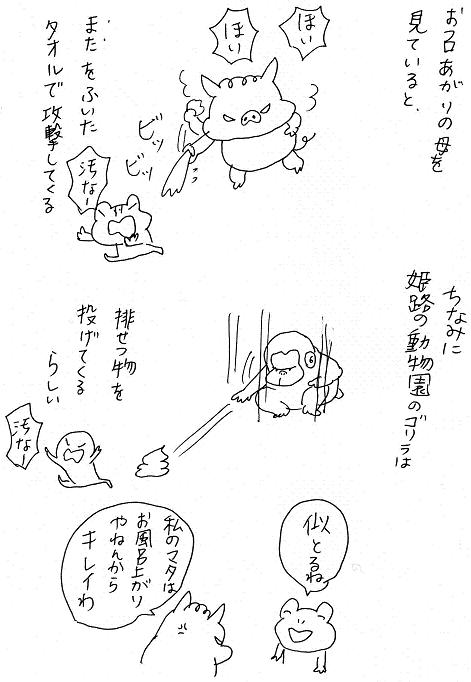 お風呂あがりの母を
見ていると、
ほい
ほい
またをふいた
タオルで攻撃してくる
ビッ
ビッ
汚なー
ちなみに
姫路の動物園のゴリラは
排せつ物を
投げてくる
らしい
汚なー
似とるね
私のマタは
お風呂上がり
やねんから
キレイわ